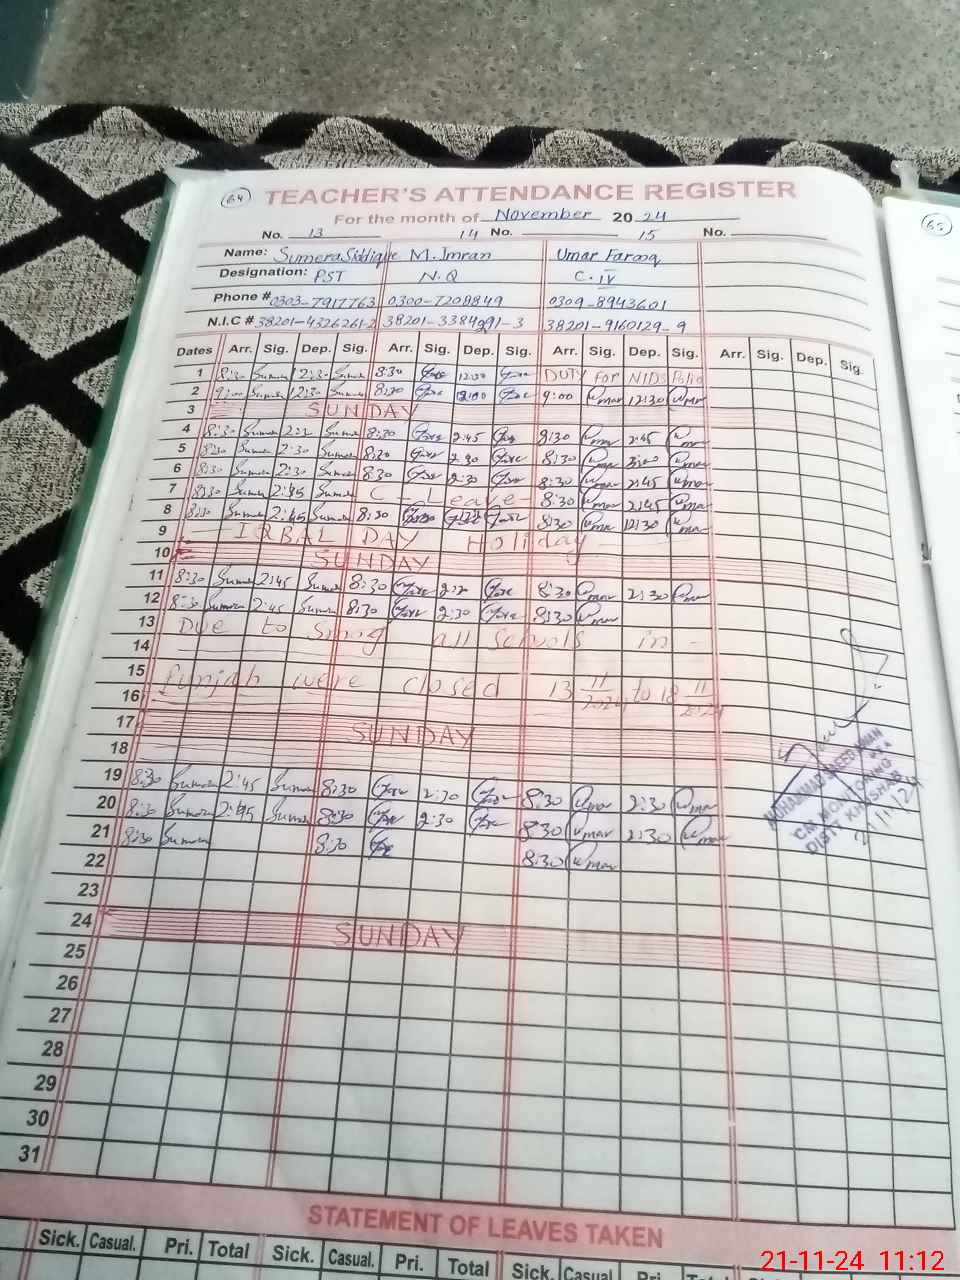 64
TEACHER'S ATTENDANCE REGISTER
65
For the month of November 20 24
No. 13 14 No. 15 No.
Name: Sumera Siddique M. Imran Umar Farooq
Designation: PST N.Q C.IV
Phone # 0303-7917763 0300-7208849 0309-8943601
N.I.C # 38201-4326261-2 38201-3384291-3 38201-9160129-9
Dates Arr. Sig. Dep. Sig. Arr. Sig. Dep. Sig. Arr. Sig. Dep. Sig. Arr. Sig. Dep. Sig.
1 8:30 Sumera 12:30 Sumera 8:30 12:00 DUTY For NIDS Polio
2 9:00 Sumera 12:30 Sumera 8:30 12:00 9:00 Umar 12:30 Umar
3 SUNDAY
4 8:30 Sumera Sumera 8:30 2:45 8:30 Umar 2:45 Umar
5 8:30 Sumera 2:30 Sumera 8:30 2:30 8:30 Umar Umar
6 8:30 Sumera 2:30 Sumera 8:30 2:30 8:30 Umar 2:45 Umar
7 8:30 Sumera 2:45 Sumera C - Leave - 8:30 Umar 2:45 Umar
8 8:30 Sumera 2:45 Sumera 8:30 8:30 Umar 12:30 Umar
9 IQBAL DAY Holiday
10 SUNDAY
11 8:30 Sumera 2:45 Sumera 8:30 8:30 Umar 2:30 Umar
12 8:30 Sumera 2:45 Sumera 8:30 2:30 8:30 Umar
13 Due to Smog all schools in -
14
15 Punjab were closed 13 11/2024 to 18 11/2024
16
17 SUNDAY
18
19 8:30 Sumera 2:45 Sumera 8:30 2:30 8:30 Umar 2:30 Umar
20 8:30 Sumera 2:45 Sumera 8:30 2:30 8:30 Umar 2:30 Umar
21 8:30 Sumera 8:30 8:30 Umar
MUHAMMAD SAEED KHAN
MEA
CM MONITORING
DISTT. KHUSHAB
21/11/24
22
23
24 SUNDAY
25
26
27
28
29
30
31
STATEMENT OF LEAVES TAKEN
Sick. Casual. Pri. Total Sick. Casual. Pri. Total Sick. Casual Pri. Total
21-11-24 11:12